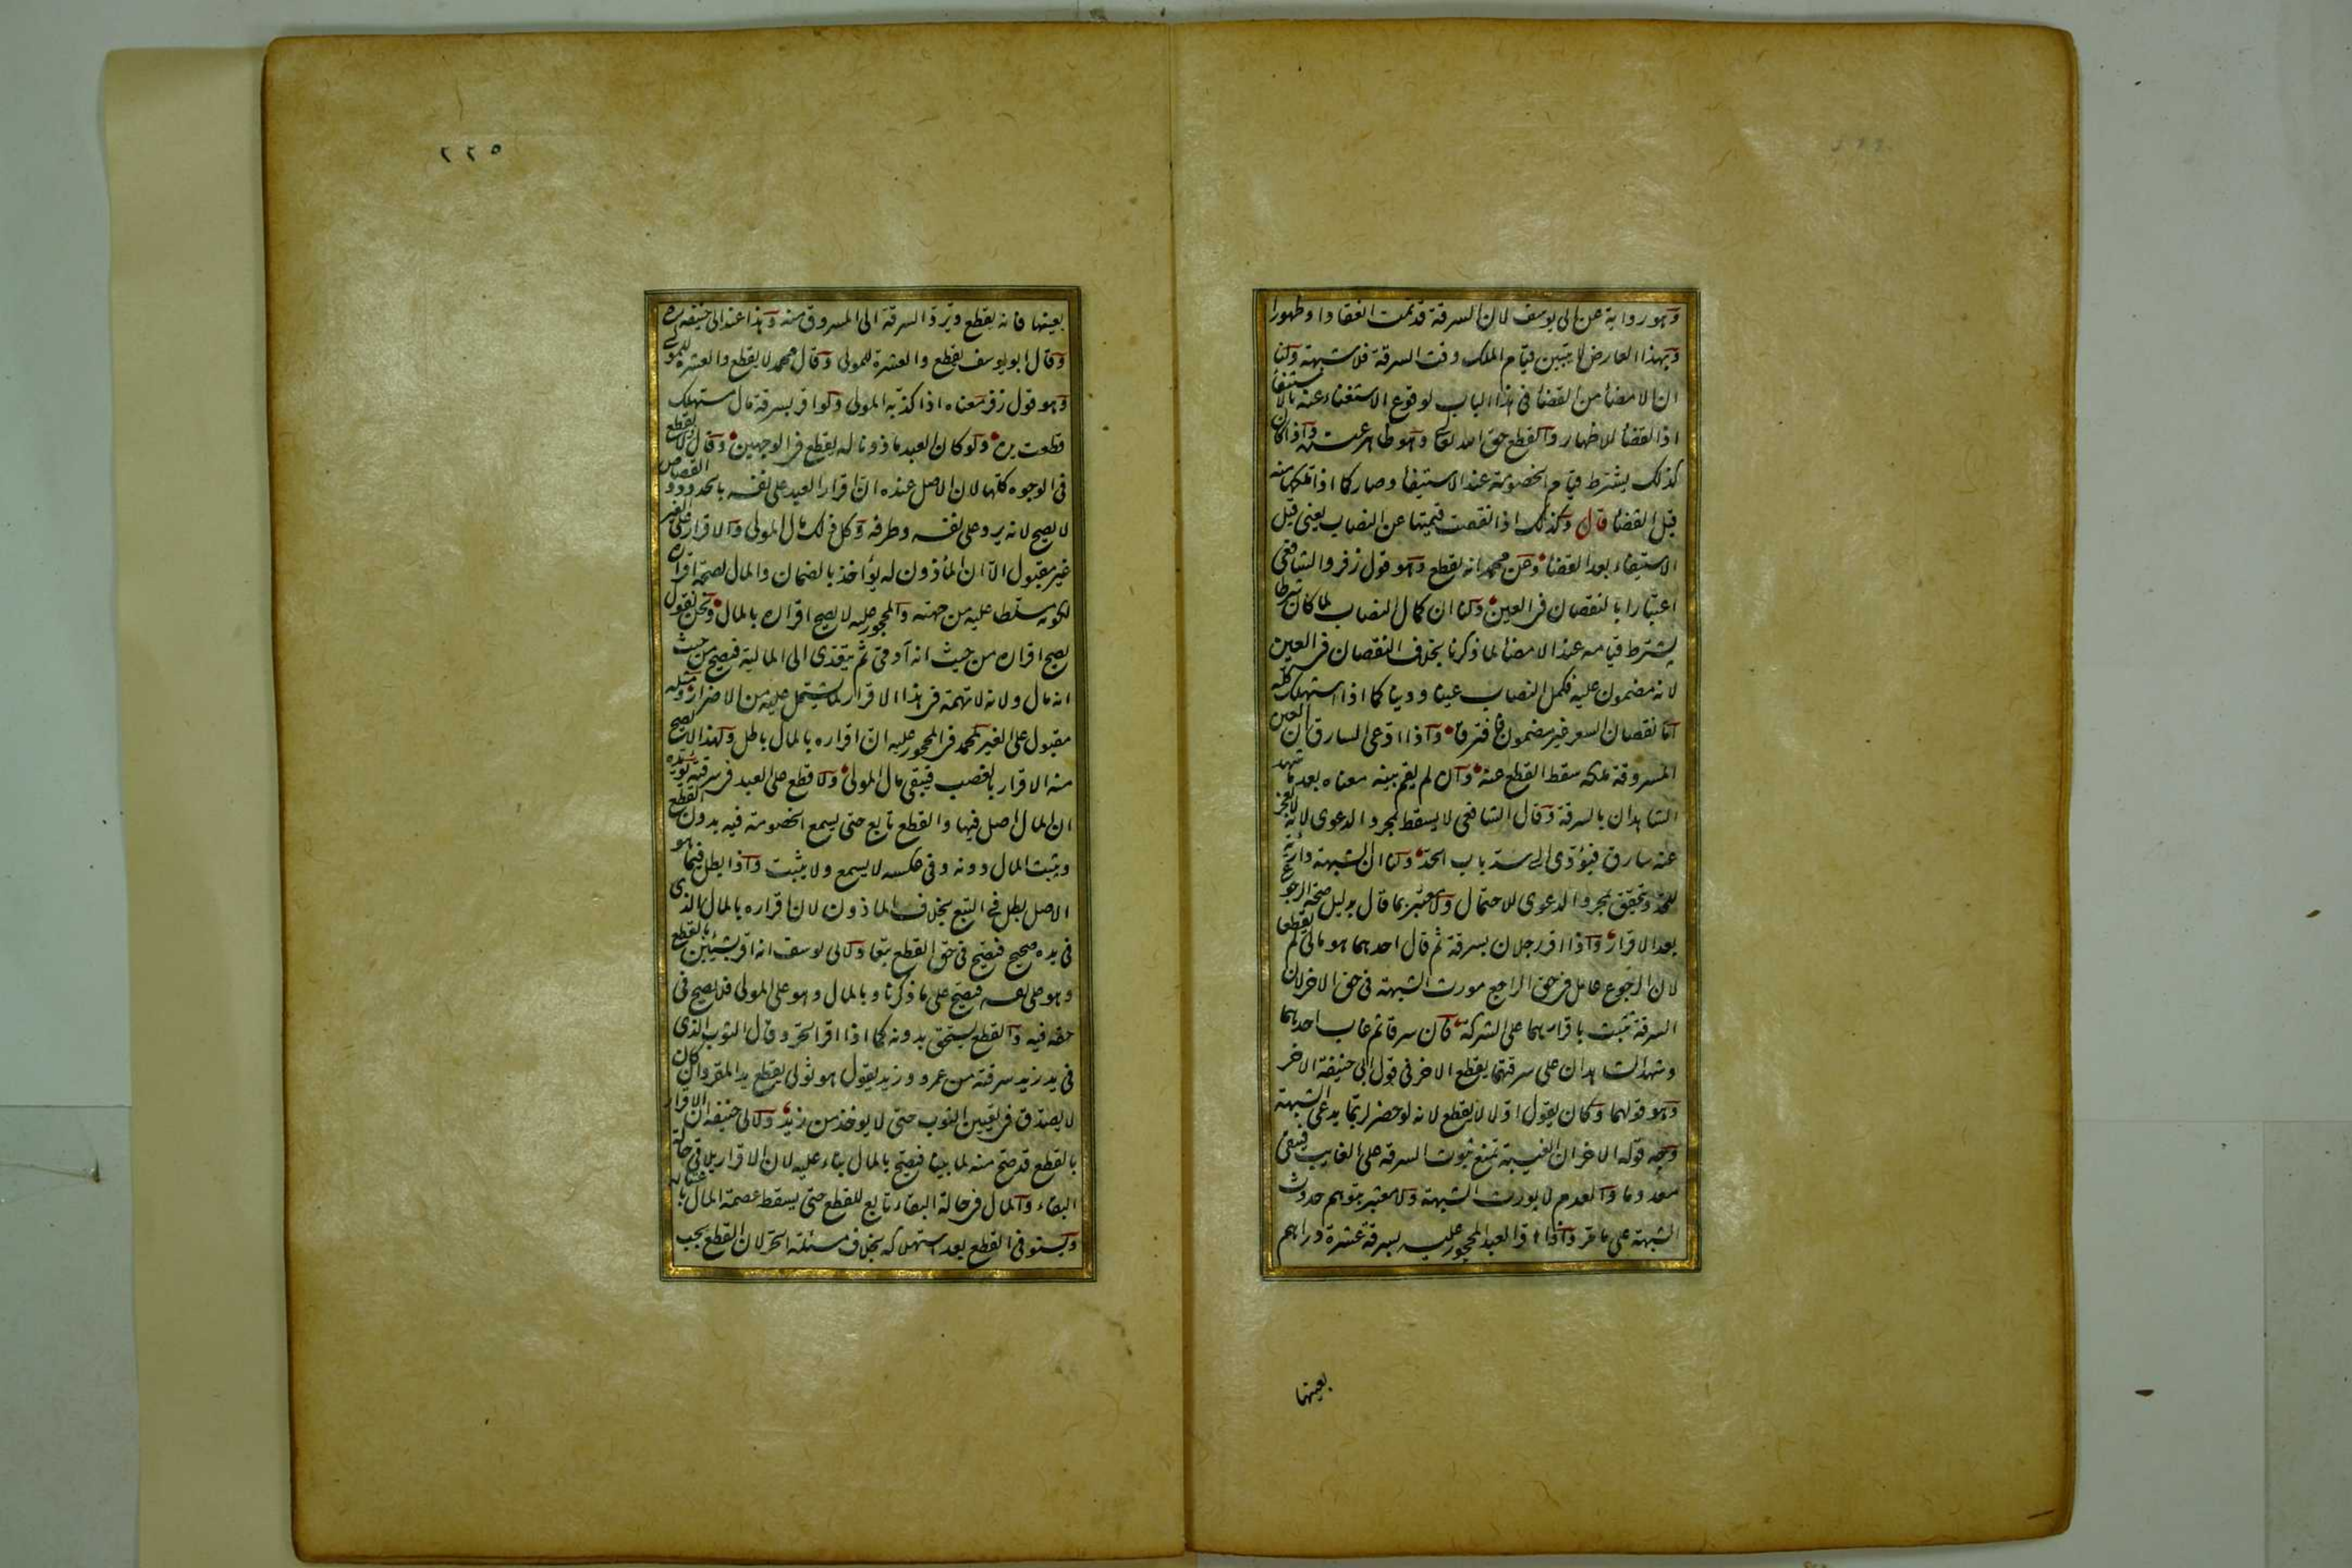 وهو رواية عن ابى يوسف لان السرقة قد تمت انعقادا وظهورا
وبهذا العارض لا يتبين قيام الملك وقت السرقة فلا شبهة ولنا
ان الامضا من القضا فى هذا الباب لوقوع الاستغناء عنه بالاستيفا
اذ القضا للاظهار والقطع حق الله تعالى وهو ظاهر عنده واذا كان
كذلك يشترط قيام الخصومة عند الاستيفا وصار كما اذا ملكها منه
قبل القضا قال وكذلك اذا نقصت قيمتها عن النصاب يعنى قبل
الاستيفاء بعد القضا وعن محمد انه يقطع وهو قول زفر والشافعى
اعتبارا بالنقصان فى العين ولنا ان كمال النصاب لما كان شرطا
يشترط قيامه عند الامضا لما ذكرنا بخلاف النقصان فى العين
لانه مضمون عليه فكمل النصاب عينا ودينا كما اذا استهلك كله
اما نقصان السعر غير مضمون فافترقا واذا ادعى السارق ان العين
المسروقة ملكه سقط القطع عنه وان لم يقم بينه معناه بعد ما شهد
الشاهدان بالسرقة وقال الشافعى لا يسقط بمجرد الدعوى لانه لا يعجز
عنه سارق فيؤدى الى سد باب الحد ولنا ان الشبهة دارية
للحد وتتحقق بمجرد الدعوى للاحتمال ولا معتبر بما قال بدليل صحة الرجوع
بعد الاقرار واذا اقر رجلان بسرقة ثم قال احدهما هو مالى لم يقطعا
لان الرجوع عامل فى حق الراجع مورث الشبهة فى حق الاخر لان
السرقة تثبت باقرارهما على الشركة فان سرقا ثم غاب احدهما
وشهد الشاهدان على سرقتهما يقطع الاخر فى قول ابى حنيفة الاخر
وهو قولهما وكان يقول اولا لا يقطع لانه لو حضر ربما يدعى الشبهة
وجه قوله الاخر ان الغيبة تمنع ثبوت السرقة على الغايب فيبقى
معدوما والمعدوم لا يورث الشبهة ولا معتبر بتوهم حدوث
الشبهة على ما مر واذا اقر العبد المحجور عليه بسرقة عشرة دراهم
بعينها
٢٢٥
بعينها فانه يقطع وترد السرقة الى المسروق منه وهذا عند ابى حنيفه ره
وقال ابو يوسف يقطع والعشرة للمولى وقال محمد لا يقطع والعشرة للمولى
وهو قول زفر معناه اذا كذبه المولى ولو اقر بسرقة مال مستهلك
قطعت يده ولو كان العبد ماذونا له يقطع فى الوجهين وقال لا يقطع
فى الوجوه كلها لان الاصل عنده ان اقرار العبد على نفسه بالحدود والقصاص
لا يصح لانه يرد على نفسه وطرفه وكل ذلك مال المولى والاقرار على الغير
غير مقبول الا ان المأذون له يؤاخذ بالضمان والمال لصحة اقراره
لكونه مسلطا عليه من جهته والمحجور عليه لا يصح اقراره بالمال ونحن نقول
يصح اقراره من حيث انه آدمى ثم يتعدى الى المالية فيصح من حيث
انه مال ولانه لا تهمة فى هذا الاقرار لما يشتمل عليه من الاضرار ومثله
مقبول على الغير لمحمد فى المحجور عليه ان اقراره بالمال باطل ولهذا لا يصح
منه الاقرار بالغصب فيبقى مال المولى ولا قطع على العبد فى سرقته يؤيده
ان المال اصل فيها والقطع تابع حتى يسمع الخصومة فيه بدون القطع
ويثبت المال دونه وفى عكسه لا يسمع ولا يثبت واذا بطل فيما هو
الاصل بطل فى التبع بخلاف الماذون لان اقراره بالمال الذى
فى يده صحيح فيصح فى حق القطع تبعا ولابى يوسف انه اقر بشيئين بالقطع
وهو على نفسه فيصح على ما ذكرنا وبالمال وهو على المولى فلا يصح فى
حقه فيه والقطع يستحق بدونه كما اذا اقر الحر وقال الثوب الذى
فى يد زيد سرقته من عمرو وزيد يقول هو ثوبى يقطع يد المقر وان كان
لا يصدق فى تعيين الثوب حتى لا يوخذ من زيد ولابى حنيفه ان الاقرار
بالقطع قد صح منه لما بينا فيصح بالمال بناء عليه لان الاقرار يلاقى حالة
البقاء والمال فى حالة البقاء تابع للقطع حتى يسقط عصمة المال باعتباره
ويستوفى القطع بعد استهلاكه بخلاف مسئلة الحر لان القطع يجب